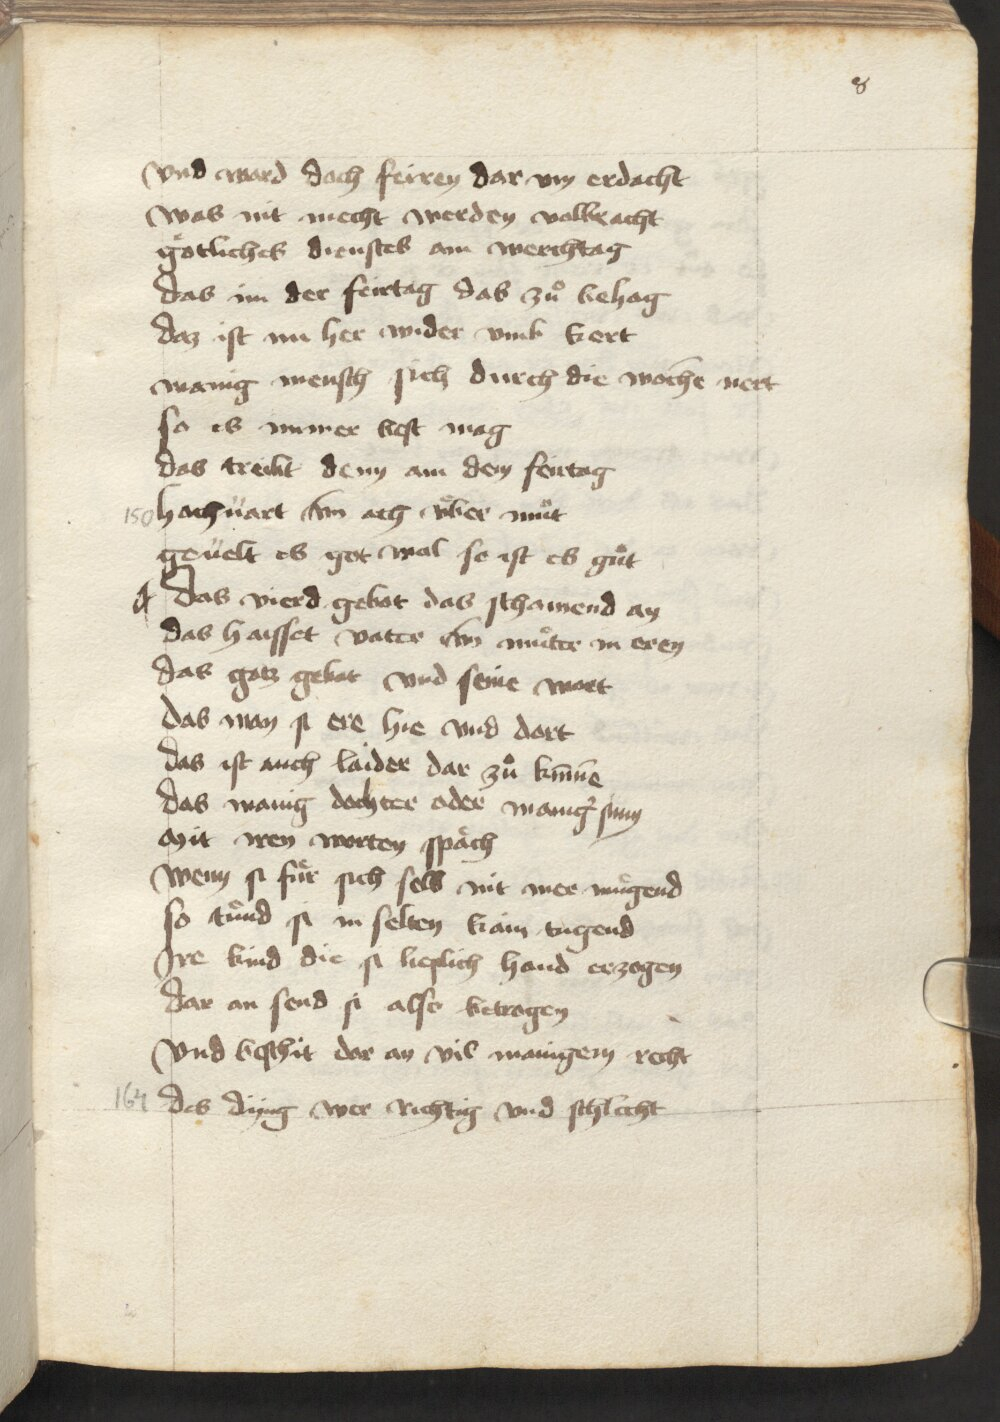 8
vnd ward doch feiren dar vm erdacht
was nit mecht werden volbracht
götliches dienstes am werchtag
das im der feirtag das zuͦ behag
daz ist nu her wider vmb kert
manig mensch sich durch die woche nert
so es immer best mag
das treibt denn am dem feirtag
150 hochuart vn ach vͤber muͦt
geuelt es got wol so ist es guͦt
Das vierd gebot das schament an
das haisset vater vn muͦter in eren
das gotz gebot vnd seine wort
das man si ere hie vnd dort
das ist auch laider dar zuͦ
das manig dochter oder sunn
Mit iren worten spaͤch
Wenn si fuͤr sich selb nit mer muͤgend
so tuͦnd si in selten kain tugend
Ire kind die si lieplich hand erzogen
dar an send si also betrogen
Vnd beschit dar an vil manigem recht
164 das ding wer richtig vnd schlecht